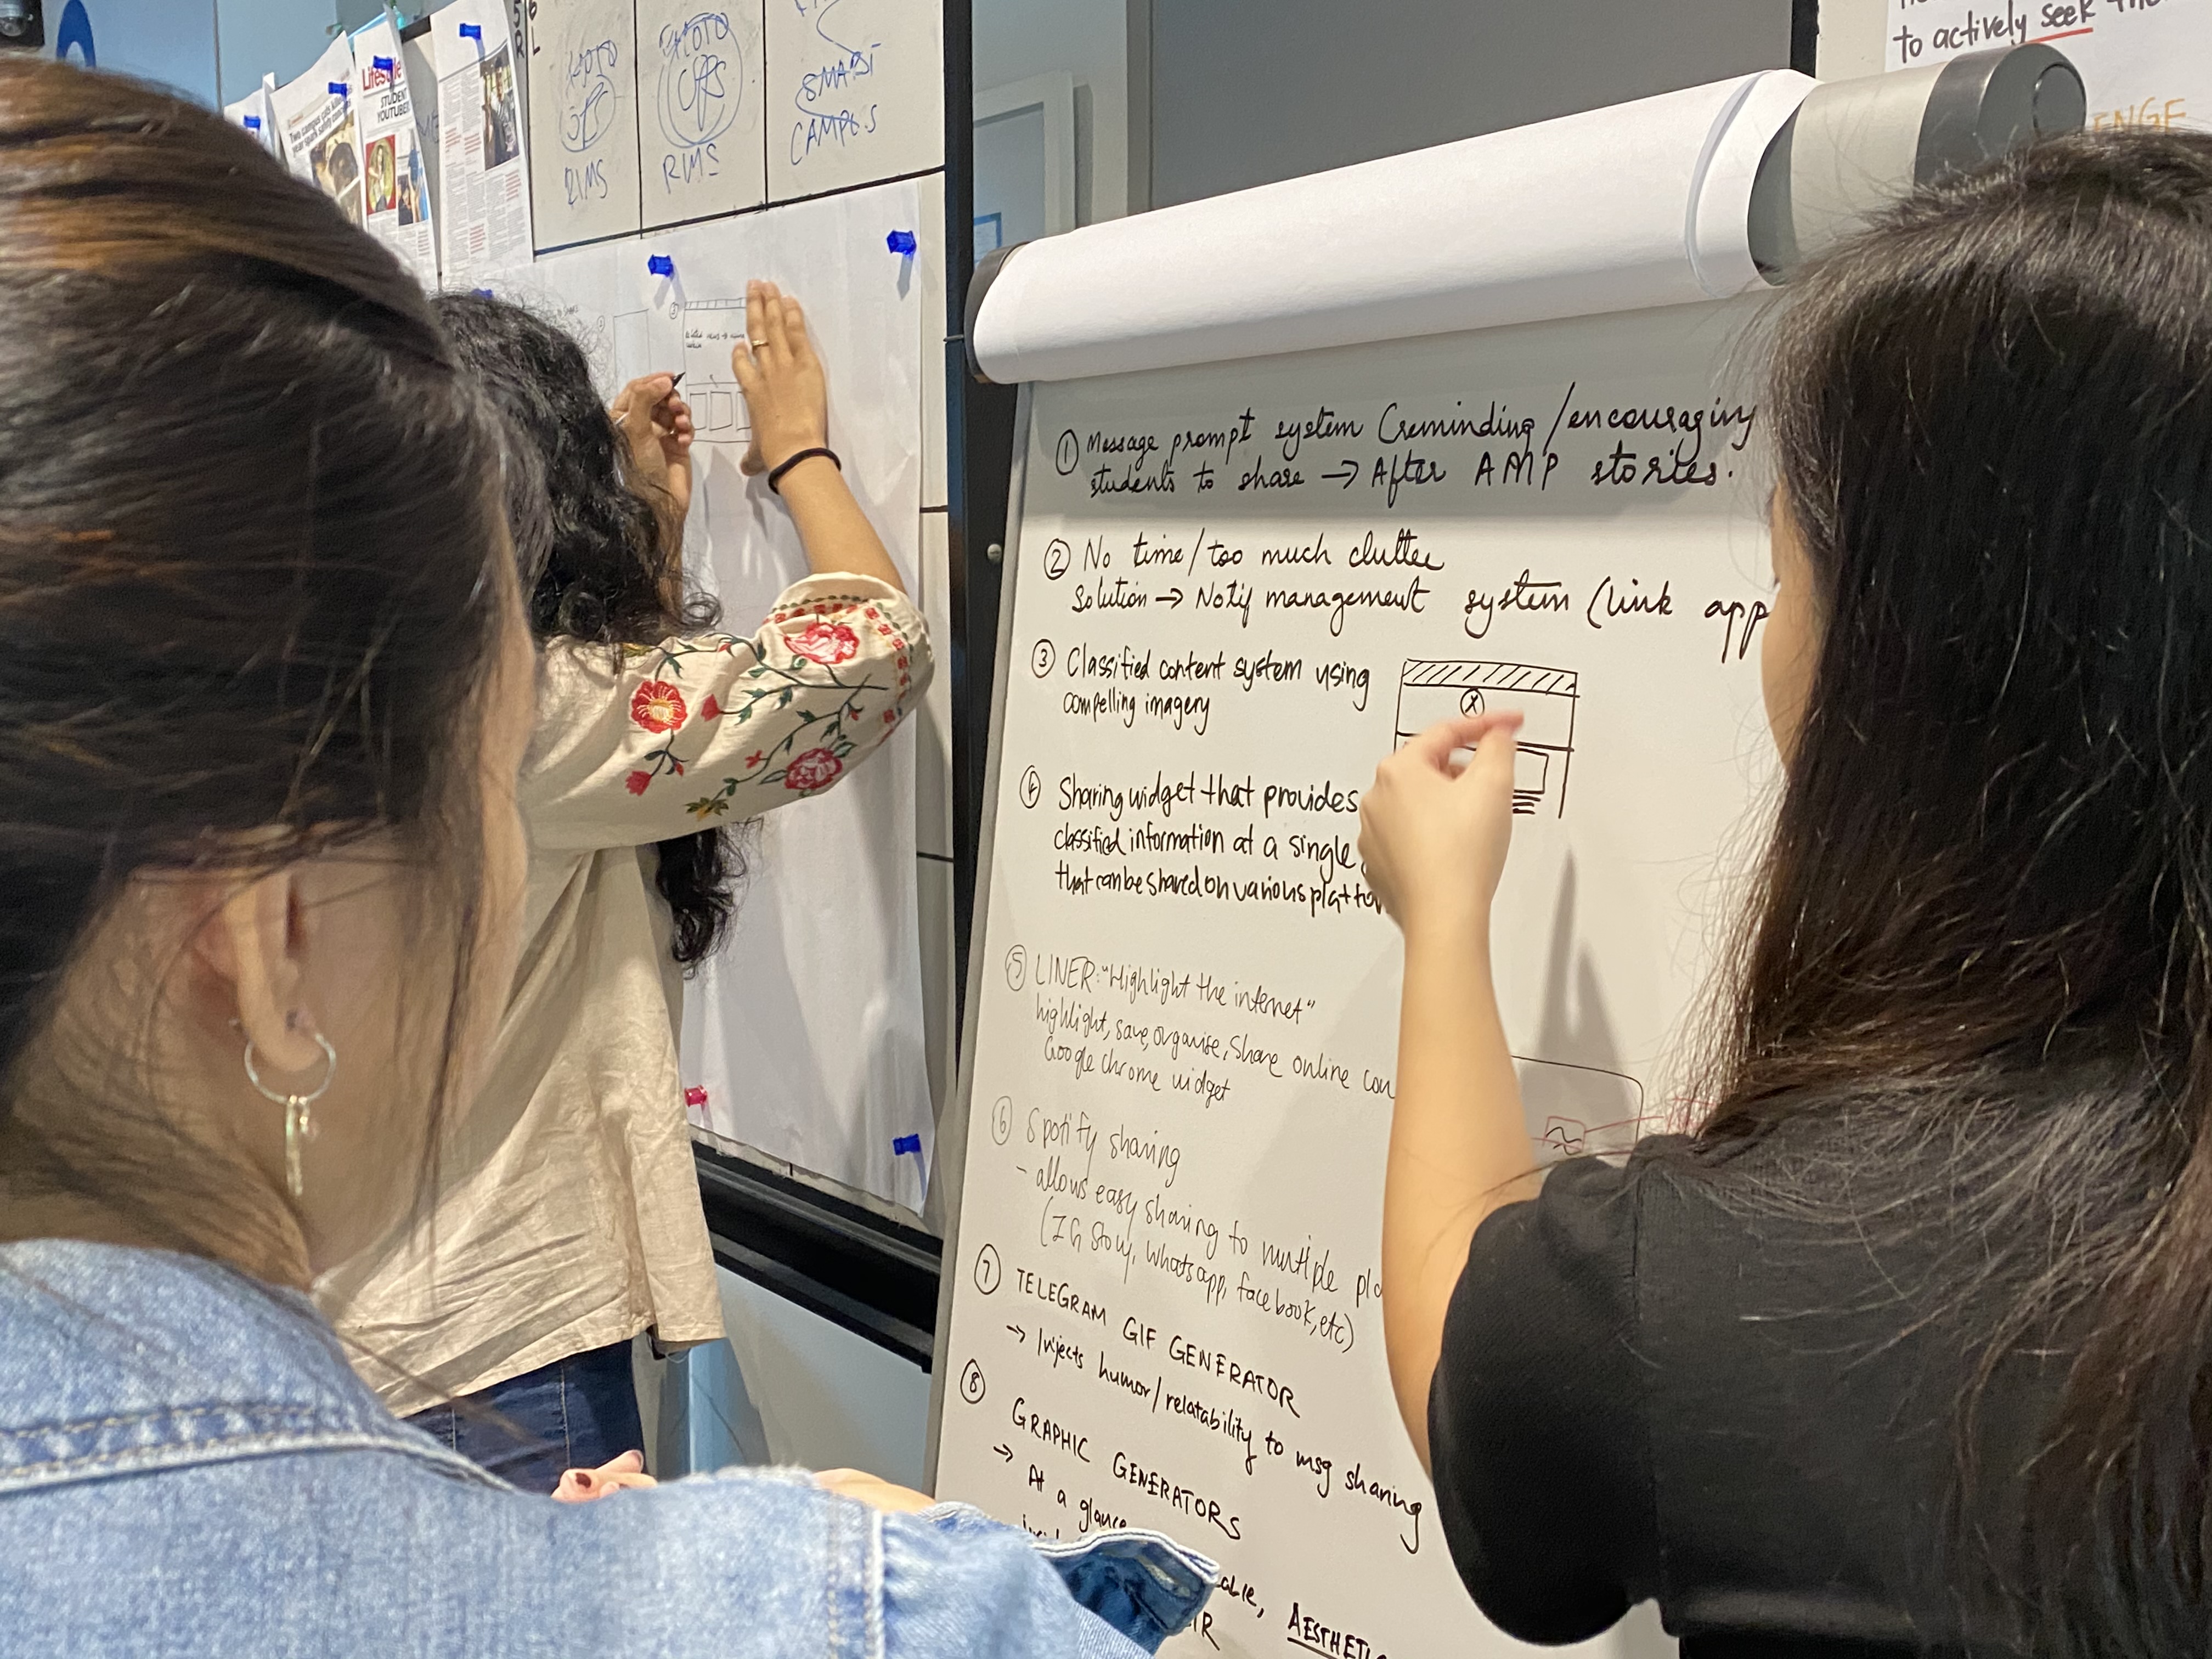 Two campus cats killed
Lifestyle
STUDENT
YOUTUBER
RIMS
RIMS
SMART
CAMPUS
to actively seek
① Message prompt system (reminding/encouraging
students to share → After AMP stories.
② No time/too much clutter
Solution → Notif management system (link app
③ Classified content system using
compelling imagery
X
④ Sharing widget that provides
classified information at a single
that can be shared on various platfor
⑤ LINER: "Highlight the internet"
highlight, save, organise, share online con
Google chrome widget
⑥ Spotify sharing
- allows easy sharing to multiple pla
(IG Story, Whatsapp, facebook, etc)
⑦ TELEGRAM GIF GENERATOR
→ Injects humor/relatability to msg sharing
⑧ GRAPHIC GENERATORS
→ At a glance
AESTHETIC